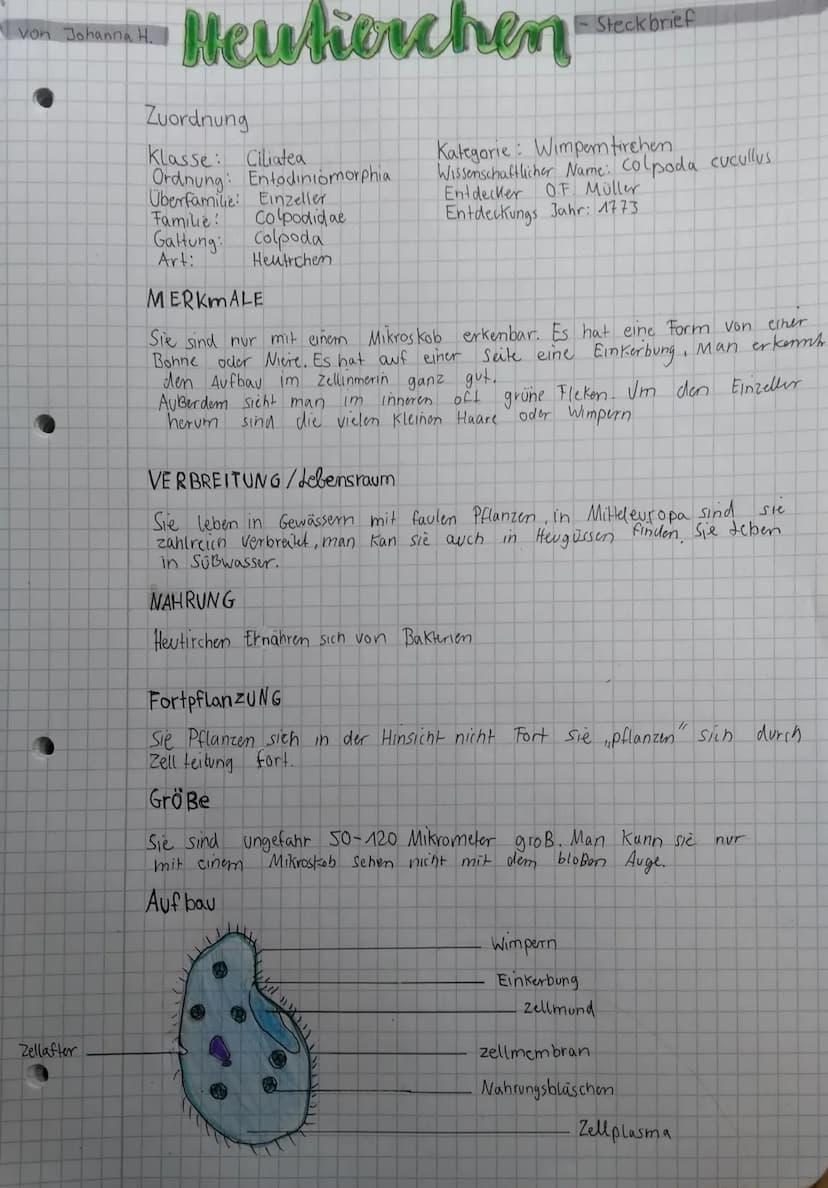 von Johanna H.
Heutierchen
- Steckbrief
Zuordnung
Klasse: Ciliatea
Ordnung: Entodiniomorphia
Überfamilie: Einzeller
Familie: Colpodidae
Gattung: Colpoda
Art: Heutrchen
Kategorie: Wimperntirehen
Wissenschaftlicher Name: Colpoda cucullus
Entdecker O.F. Müller
Entdeckungs Jahr: 1773
MERKmALE
Sie sind nur mit einem Mikroskob erkenbar. Es hat eine Form von einer
Bohne oder Niere. Es hat auf einer Seite eine Einkerbung. Man erkennt
den Aufbau im Zellinnerin ganz gut.
Außerdem sieht man im inneren oft grüne Fleken. Um den Einzeller
herum sind die vielen Kleinen Haare oder Wimpern
VERBREITUNG/Lebensraum
Sie leben in Gewässern mit faulen Pflanzen, in Mitteleuropa sind sie
zahlreich verbreitet, man kan sie auch in Heugüssen finden. Sie leben
in Süßwasser.
NAHRUNG
Heutirchen Ernähren sich von Bakterien
FortpflanzUNG
Sie Pflanzen sich in der Hinsicht nicht Fort sie „pflanzen" sich durch
Zell teilung fort.
Größe
Sie sind ungefähr 50-120 Mikrometer groß. Man kann sie nur
mit einem Mikroskob sehen nicht mit dem bloßen Auge.
Aufbau
Wimpern
Einkerbung
Zellmund
Zellafter
Zellmembran
Nahrungsbläschen
Zellplasma